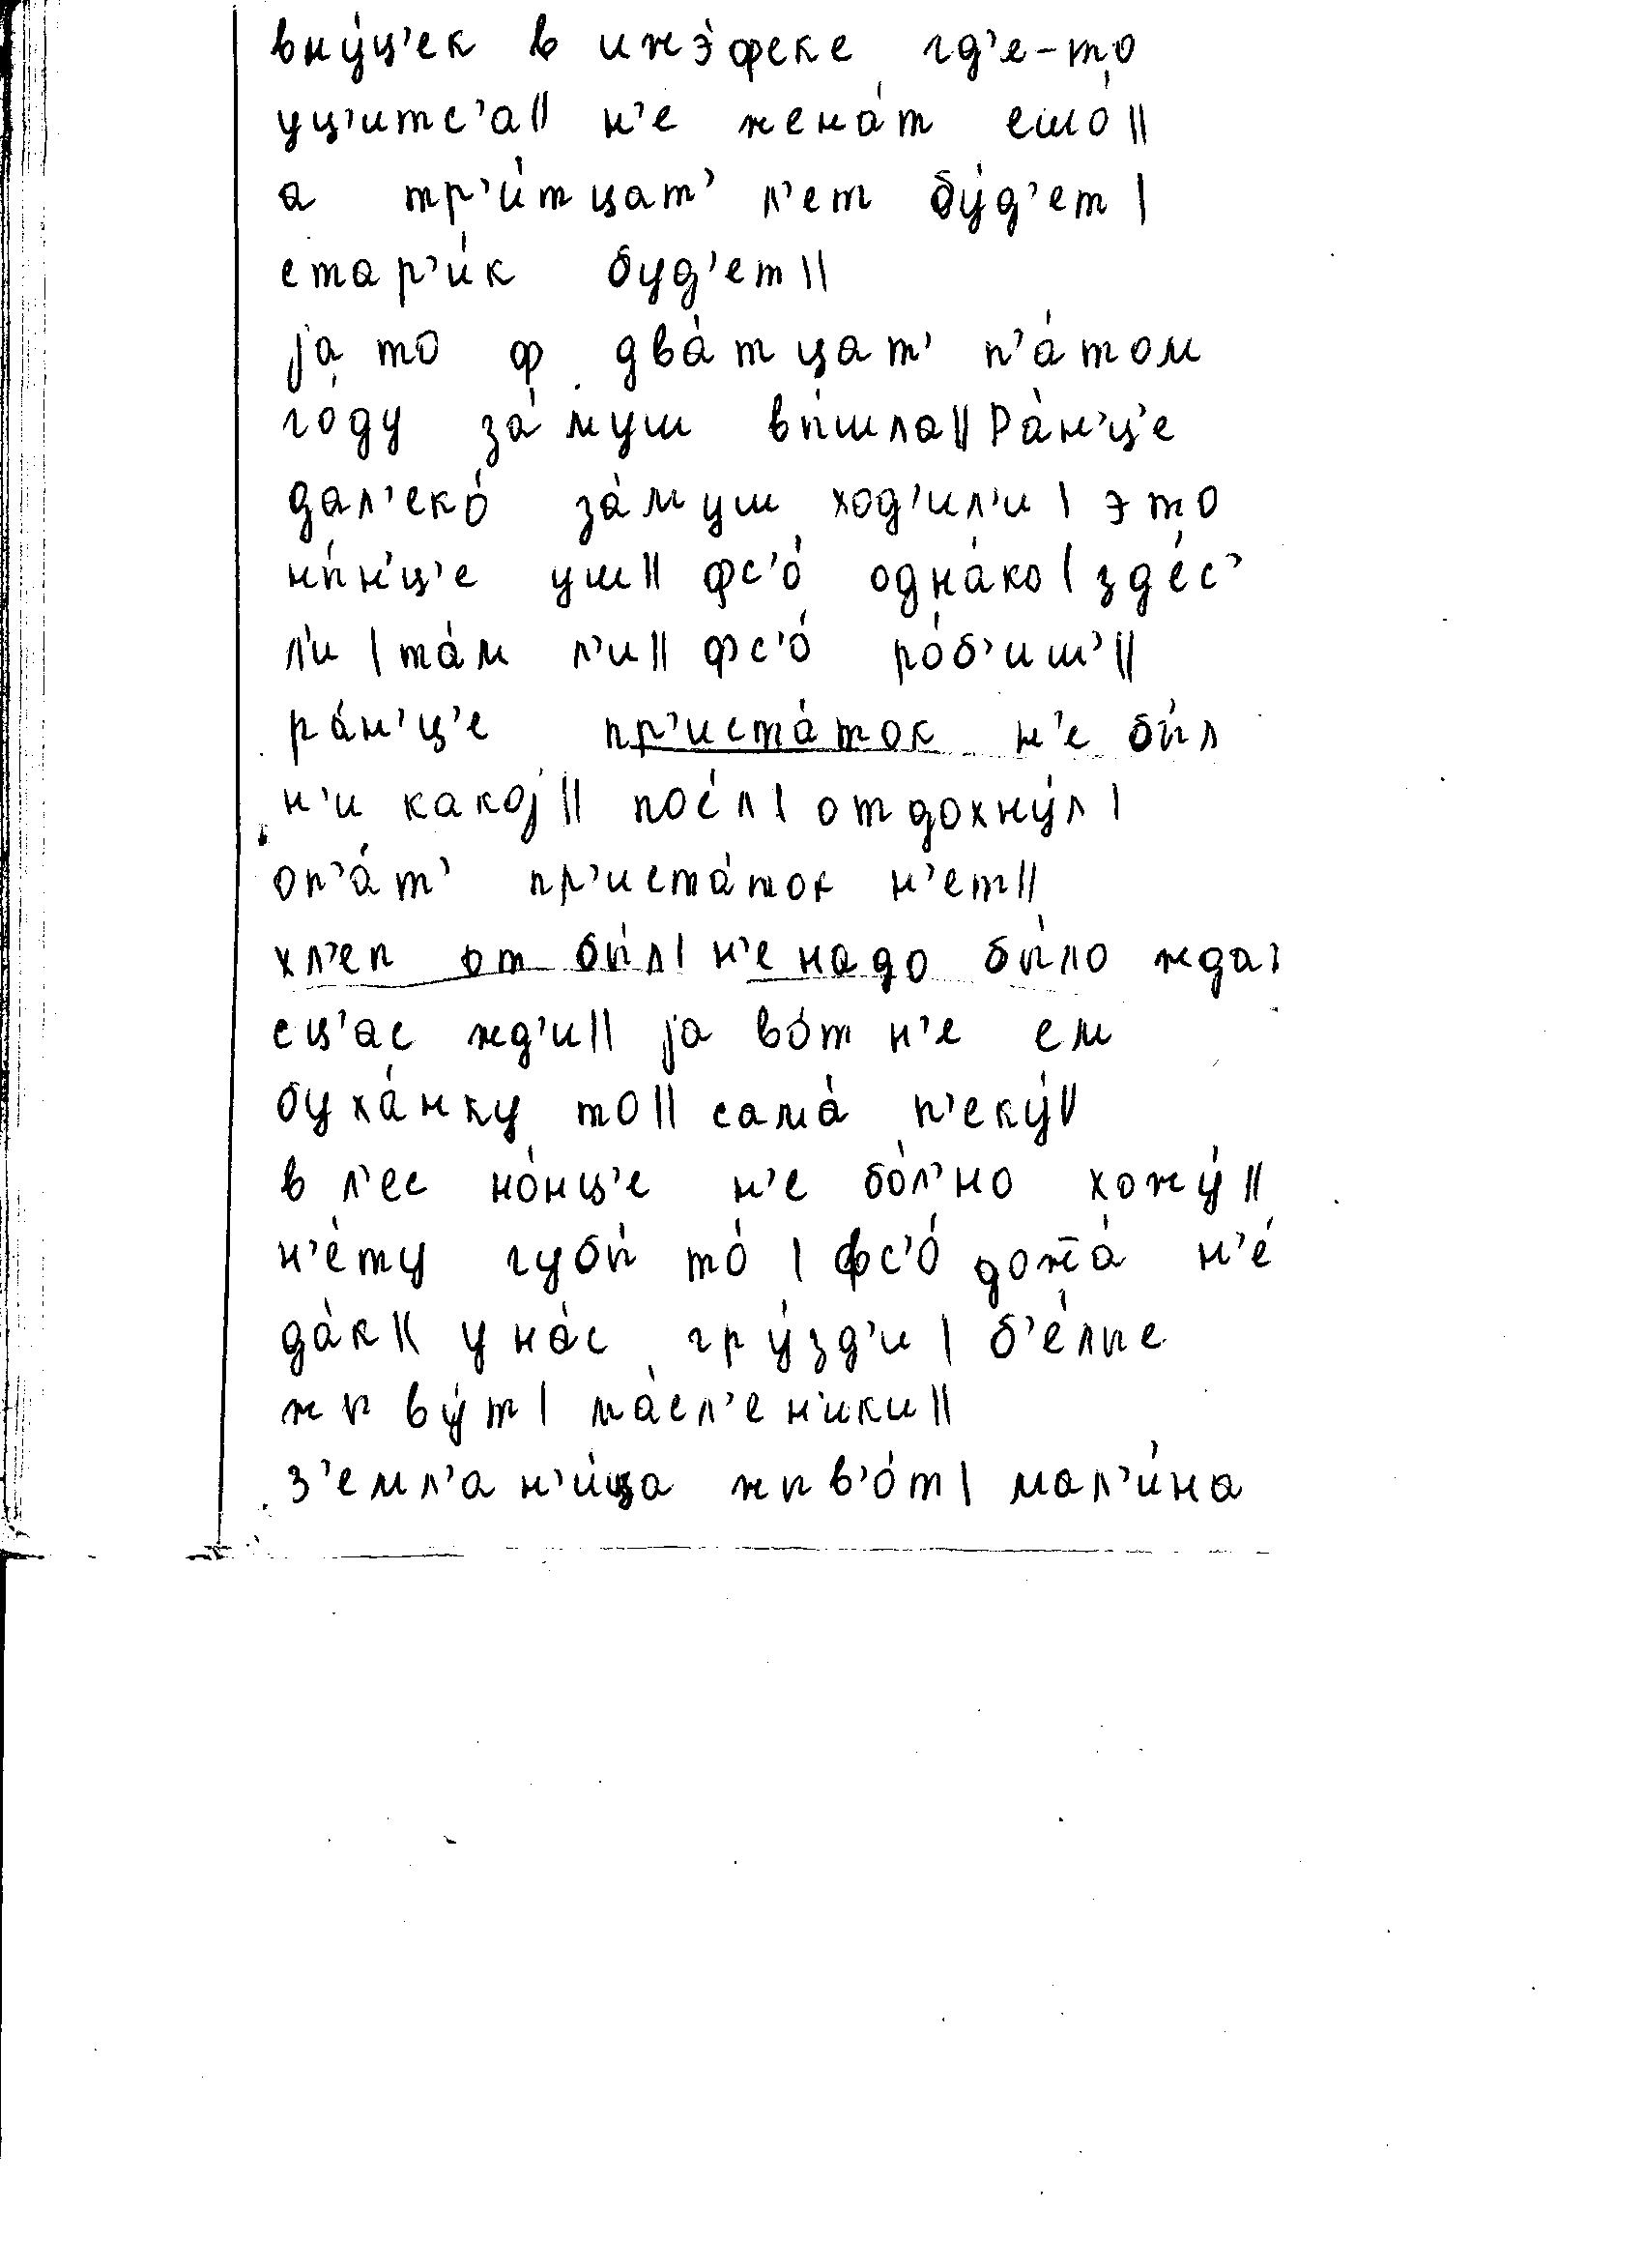 вну́ц'ек в ижэ́фске гд'е-то
уц'итс'а|| н'е жена́т ешо́||
а тр'и́тцат' л'ет бу́д'ет|
стар'и́к буд'ет||
ја то ф два́тцат' п'а́том
го́ду за́муш вы́шла|| Ра́н'ц'е
дал'еко́ за́муш ход'ил'и| это
ны́н'ц'е уш|| фс'о́ одна́ко| зде́с'
л'и| та́м л'и|| фс'о́ ро́б'иш'||
ра́н'ц'е пр'иста́ток н'е бы́л
н'и какој|| пое́л| отдохну́л|
оп'а́т' пр'иста́ток н'ет||
хл'еп от бы́л| н'е надо бы́ло ждат'
сц'ас жд'и|| ја во́т н'е ем
буха́нку то|| сама́ п'еку́||
в л'ес но́нц'е н'е бо́л'но хожу́||
н'е́ту губы́ то́| фс'о́ дожа́ н'е́
да́к|| у на́с гру́зд'и| б'е́лые
жыву́т| ма́сл'еники||
з'емл'ан'и́ца жыв'о́т| мал'и́на